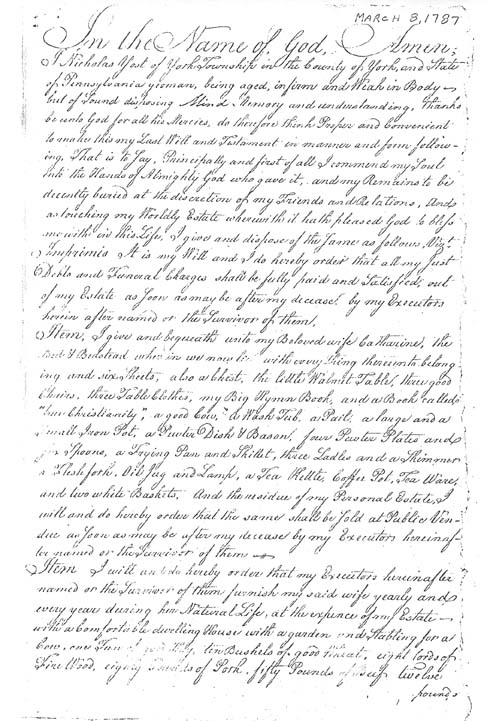 MARCH 8, 1787
In the Name of God, Amen;
I Nicholas Yost of York Township in the County of York, and State
of Pennsylvania yeoman, being aged, infirm and Weak in Body
but of Sound disposing Mind Memory and understanding, thanks
be unto God for all his Mercies, do therefore think Proper and Convenient
to make this my Last Will and Testament in manner and form follow-
ing. That is to Say, Principally and first of all I commend my Soul
into the Hands of Almighty God who gave it, and my Remains to be
decently buried at the discretion of my Friends and Relations, And
as touching my Worldly Estate wherewith it hath pleased God to bless
me with in this Life, I give and dispose of the Same as follows Vizt
Imprimis It is my Will and I do hereby order that all my Just
Debts and Funeral Charges shall be fully paid and Satisfied, out
of my Estate as Soon as may be after my decease by my Executors
herein after named or the Survivor of them.
Item, I give and bequeath unto my Beloved wife Catharine, the
Bed & Bedstead wherein we now lie with every Thing thereunto belong
ing and six Sheets, also a Chest, the little Walnut Table, three good
Chairs, three Table Clothes, my Big Hymn Book, and a Book called
Christianity", a good Cow, a Wash Tub, a Pail, a large and a
Small Iron Pot, a Pewter Dish & Bason, four Pewter Plates and
Spoons, a Frying Pan and Skillet, three Ladles and a Skimmer
a Fleshfork, Oil Jug and Lamp, a Tea Kettle, Coffee Pot, Tea Ware,
and two white Baskets, And the residue of my Personal Estate, I
will and do hereby order that the same shall be Sold at Public Ven-
due as Soon as may be after my decease by my Executors hereinaf-
ter named or the Survivor of them
Item I will and do hereby order that my Executors hereinafter
named or the Survivor of them furnish my said wife yearly and
every year during her Natural Life, at the expence of my Estate
with a Comfortable dwelling House with a garden and Stabling for a
Cow, one Tun of good Hay, ten Bushels of good Wheat, eight Cords of
Fire Wood, eighty Pounds of Pork, fifty Pounds of Beef twelve
pounds